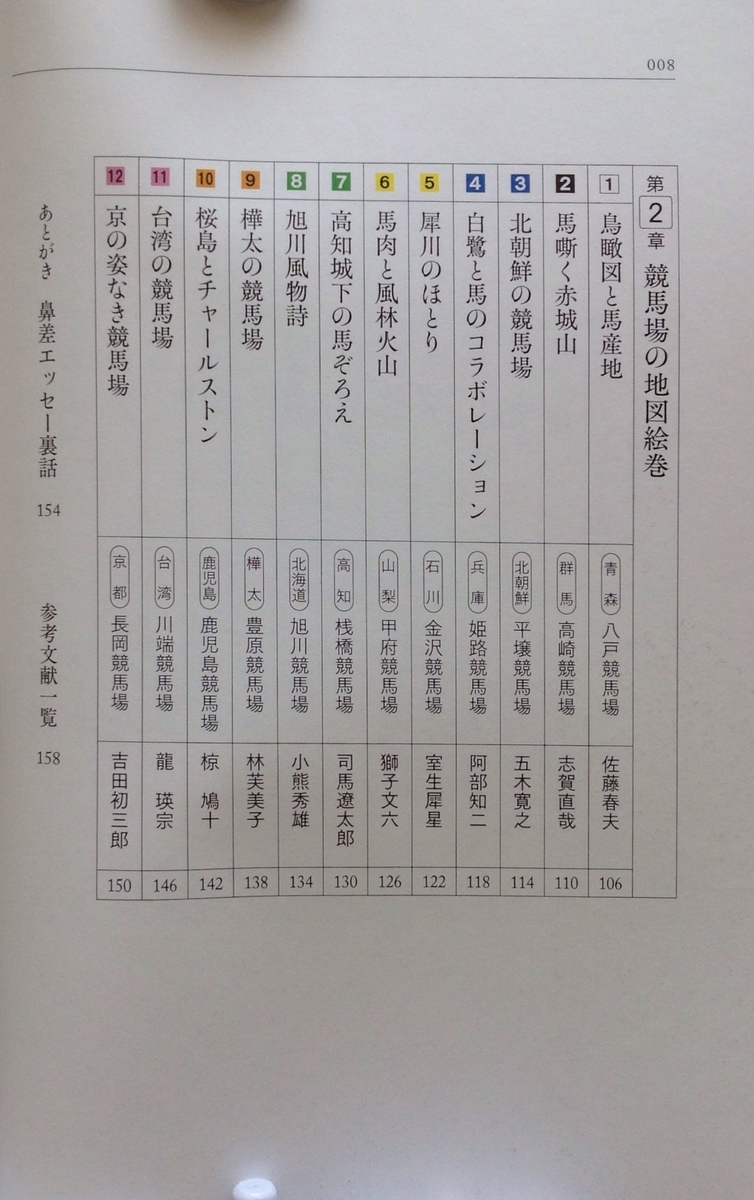 008
第2章 競馬場の地図絵巻
1 鳥瞰図と馬産地 青森 八戸競馬場 佐藤春夫 106
2 馬嘶く赤城山 群馬 高崎競馬場 志賀直哉 110
3 北朝鮮の競馬場 北朝鮮 平壌競馬場 五木寛之 114
4 白鷺と馬のコラボレーション 兵庫 姫路競馬場 阿部知二 118
5 犀川のほとり 石川 金沢競馬場 室生犀星 122
6 馬肉と風林火山 山梨 甲府競馬場 獅子文六 126
7 高知城下の馬ぞろえ 高知 桟橋競馬場 司馬遼太郎 130
8 旭川風物詩 北海道 旭川競馬場 小熊秀雄 134
9 樺太の競馬場 樺太 豊原競馬場 林芙美子 138
10 桜島とチャールストン 鹿児島 鹿児島競馬場 椋 鳩十 142
11 台湾の競馬場 台湾 川端競馬場 龍 瑛宗 146
12 京の姿なき競馬場 京都 長岡競馬場 吉田初三郎 150
あとがき 鼻差エッセー裏話 154
参考文献一覧 158